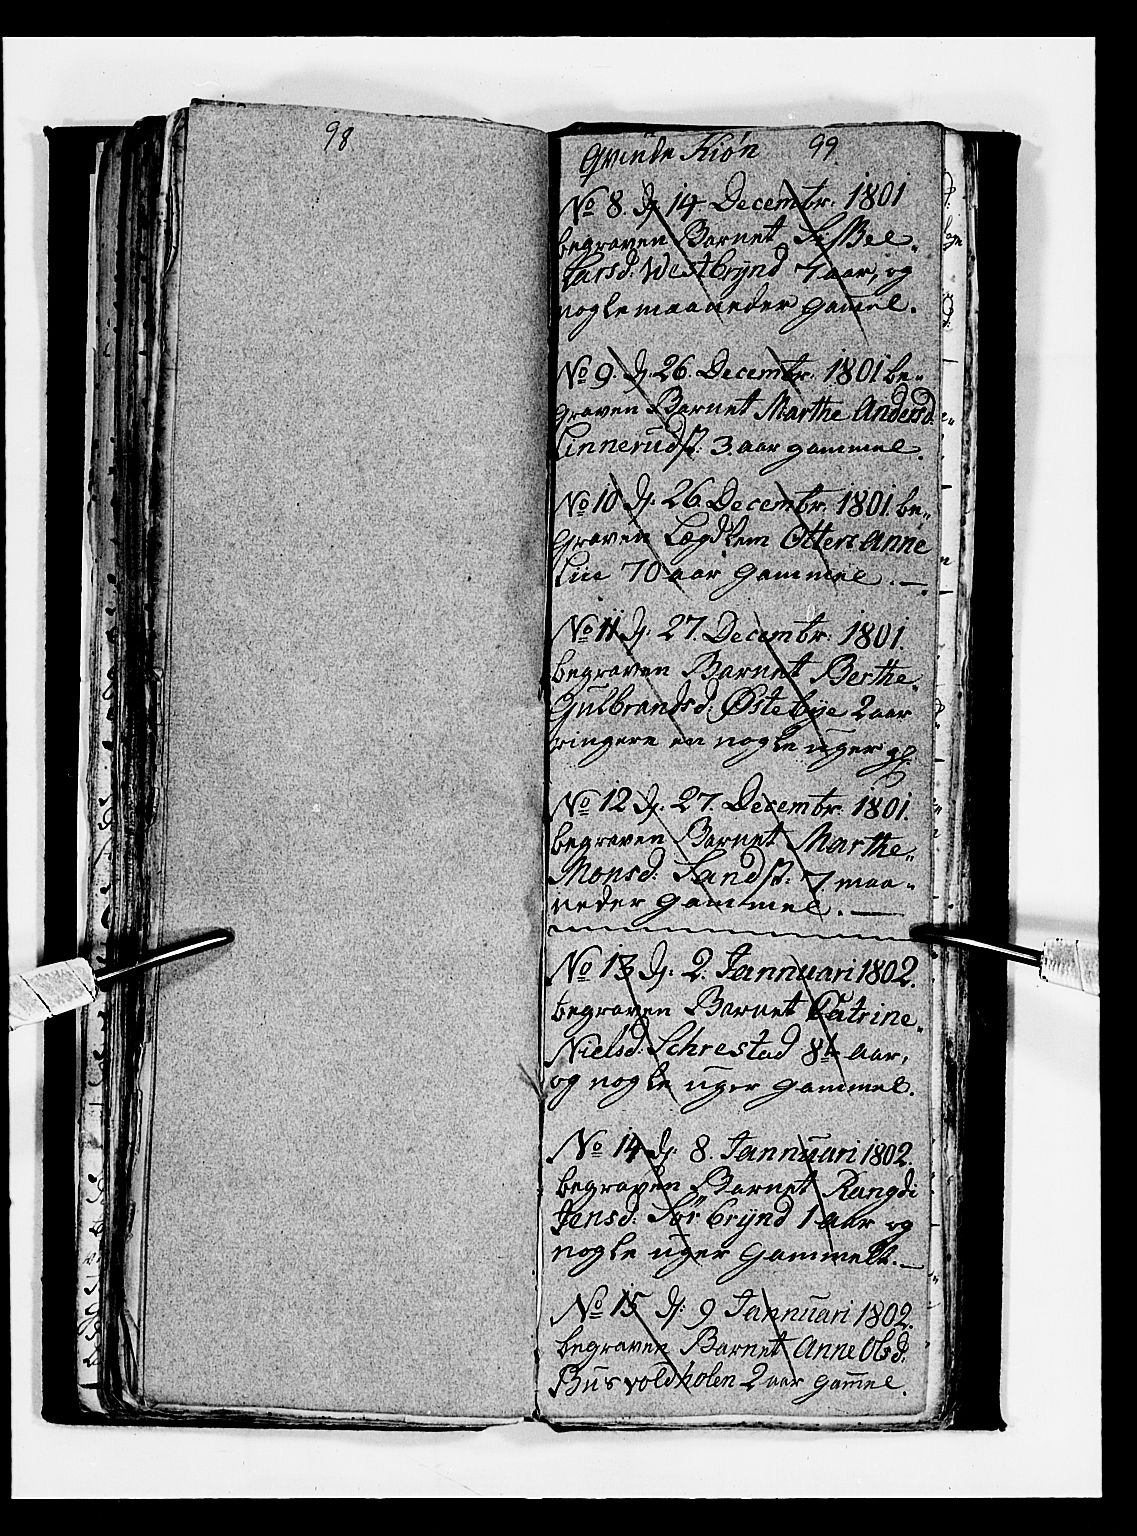 98
Qvinde Kiøn 99
No 8. dj 14 Decembr. 1801
begraven Barnet Sissel
Larsd: Westbrÿnd 7 aar, og
nogle maaneder gamel.
No 9. dj. 26. Decembr. 1801 be-
graven Barnet Marthe Andersd.
Linnerudst: 3. aar gammel.
No 10 dj. 26. Decembr. 1801. be-
graven Lægdlem Otters Anne
Lie 70 aar gammel.
No 11 dj. 27. Decembr. 1801.
begraven Barnet Berthe
Gulbrandsd: Østebye 2 aar
ringere en nogle uger gl.
No 12 dj. 27. Decembr. 1801.
begraven Barnet Marthe
Monsd: Sandst: 7 maa-
neder gammel.
No 13 dj. 2. Jannuari 1802.
begraven Barnet Catrine
Nielsd: Schrestad 8 aar,
og nogle uger gammel.
No 14 dj. 8. Jannuari 1802.
begraven Barnet Rangdi
Jensd: Sør brÿnd 1 aar og
nogle uger gammelt.
No 15 dj: 9 Jannuari 1802.
begraven Barnet Anne Olsd:
Busvoldholen 2 aar gam̄el.